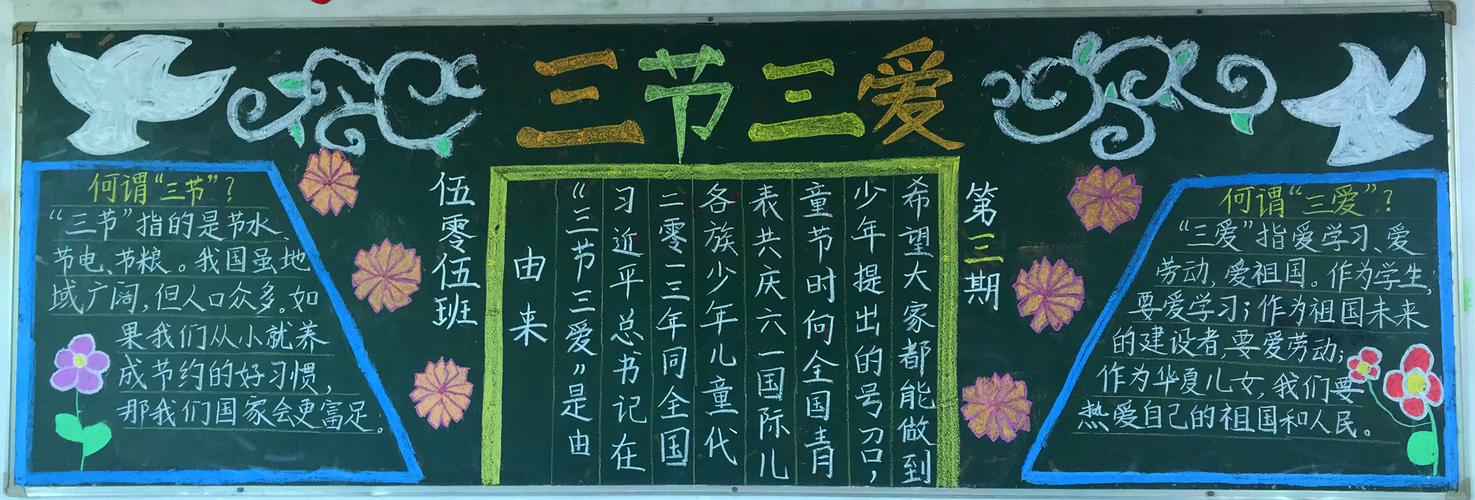 三节三爱
何谓“三节”？
“三节”指的是节水、
节电、节粮。我国虽地
域广阔，但人口众多。如
果我们从小就养
成节约的好习惯，
那我们国家会更富足。
伍零伍班
由来
“三节三爱”是由
习近平总书记在
二零一三年同全国
各族少年儿童代
表共庆六一国际儿
童节时向全国青
少年提出的号召，
希望大家都能做到
第三期
何谓“三爱”？
“三爱”指爱学习、爱
劳动，爱祖国。作为学生，
要爱学习；作为祖国未来
的建设者，要爱劳动；
作为华夏儿女，我们要
热爱自己的祖国和人民。